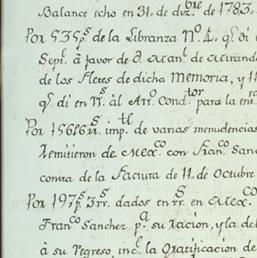 Balance echo en 31,, de diz.bre de 1783,,
Por 535p.s de la Libranza N.o 1,, q.e di en
Sept.e à favor de D. Man.l de Miranda
de los Fletes de dicha Memoria, y
q.e di en rr.s àl Arr.o Cond.tor para la
Por 156p 6rr.s imp.te de varias menudencias
remitieron de Mex.co con Fran.co San
consta de la Factura de 11,, de Octubre
Por 197p.s 3rr.s dados en rr.s en Mex.co
Fran.co Sanchez p.a su racion, y la de
à su regreso, inc.l la Gratificacion de